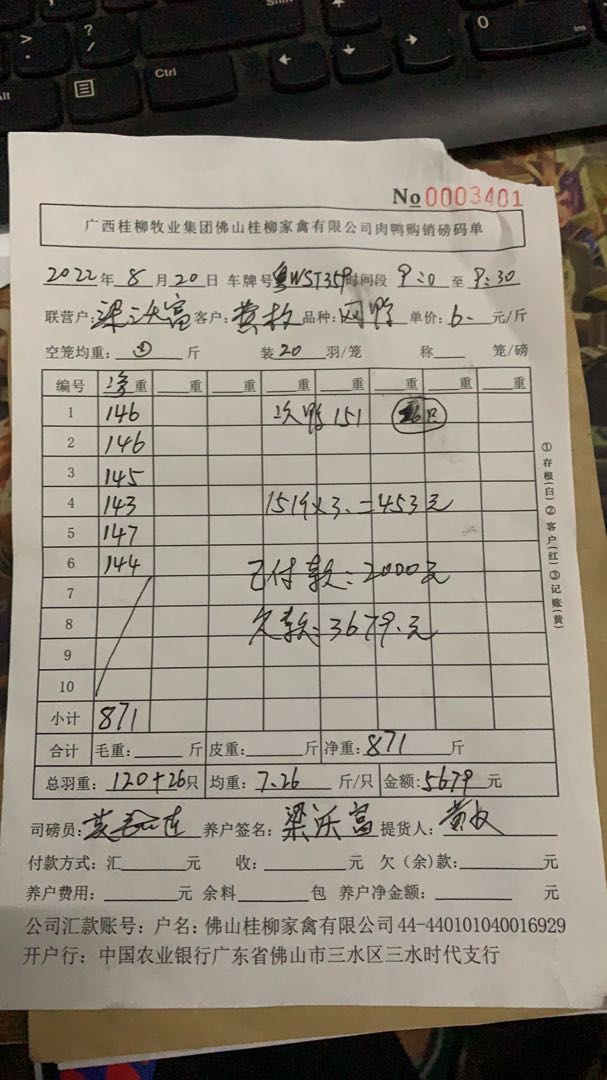 No 0003401
广西桂柳牧业集团佛山桂柳家禽有限公司肉鸭购销磅码单
2022年 8月 20日 车牌号 粤WST359 时间段 9:0 至 9:30
联营户: 梁沃富 客户: 黄 品种: 鸭 单价: 6. 元/斤
空笼均重: 斤 装 20 羽/笼 称 笼/磅
编号 净重 重 重 重 重 重 重 重 重
1 146 次鸭 151 26只
2 146
3 145
4 143 151斤×3.=453元
5 147
6 144 已付款:2000元
7
8 欠款:3679.元
9
10
小计 871
合计 毛重: 斤 皮重: 斤 净重: 871 斤
总羽重: 120+26只 均重: 7.26 斤/只 金额: 5679 元
司磅员: 黄 养户签名: 梁沃富 提货人: 黄
付款方式: 汇 元 收: 元 欠（余）款: 元
养户费用: 元 余料 包 养户净金额: 元
公司汇款账号: 户名: 佛山桂柳家禽有限公司 44-440101040016929
开户行: 中国农业银行广东省佛山市三水区三水时代支行
①存根(白)②客户(红)③记账(黄)
Shift
Ctrl
Alt
0
Ins